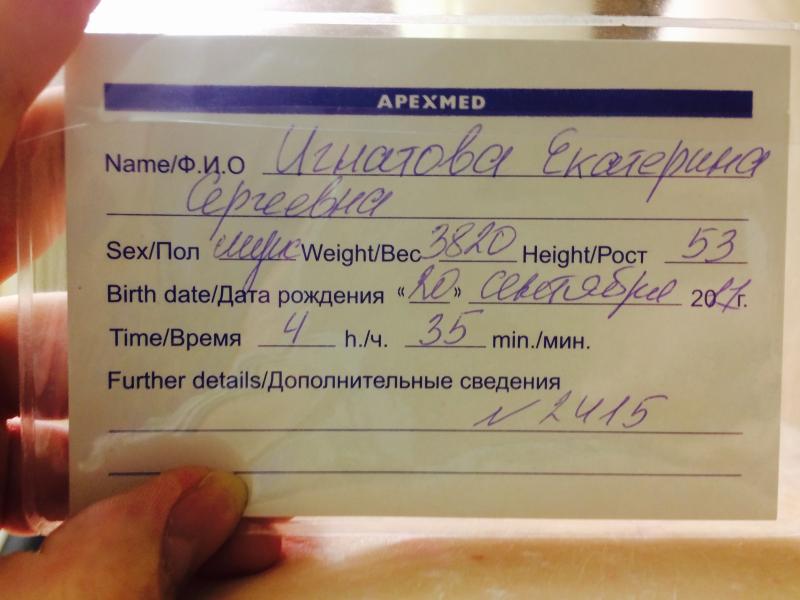 APEXMED
Name/Ф.И.О Игнатова Екатерина
Сергеевна
Sex/Пол муж Weight/Вес 3820 Height/Рост 53
Birth date/Дата рождения «20» сентября 2017г.
Time/Время 4 h./ч. 35 min./мин.
Further details/Дополнительные сведения
N 2415